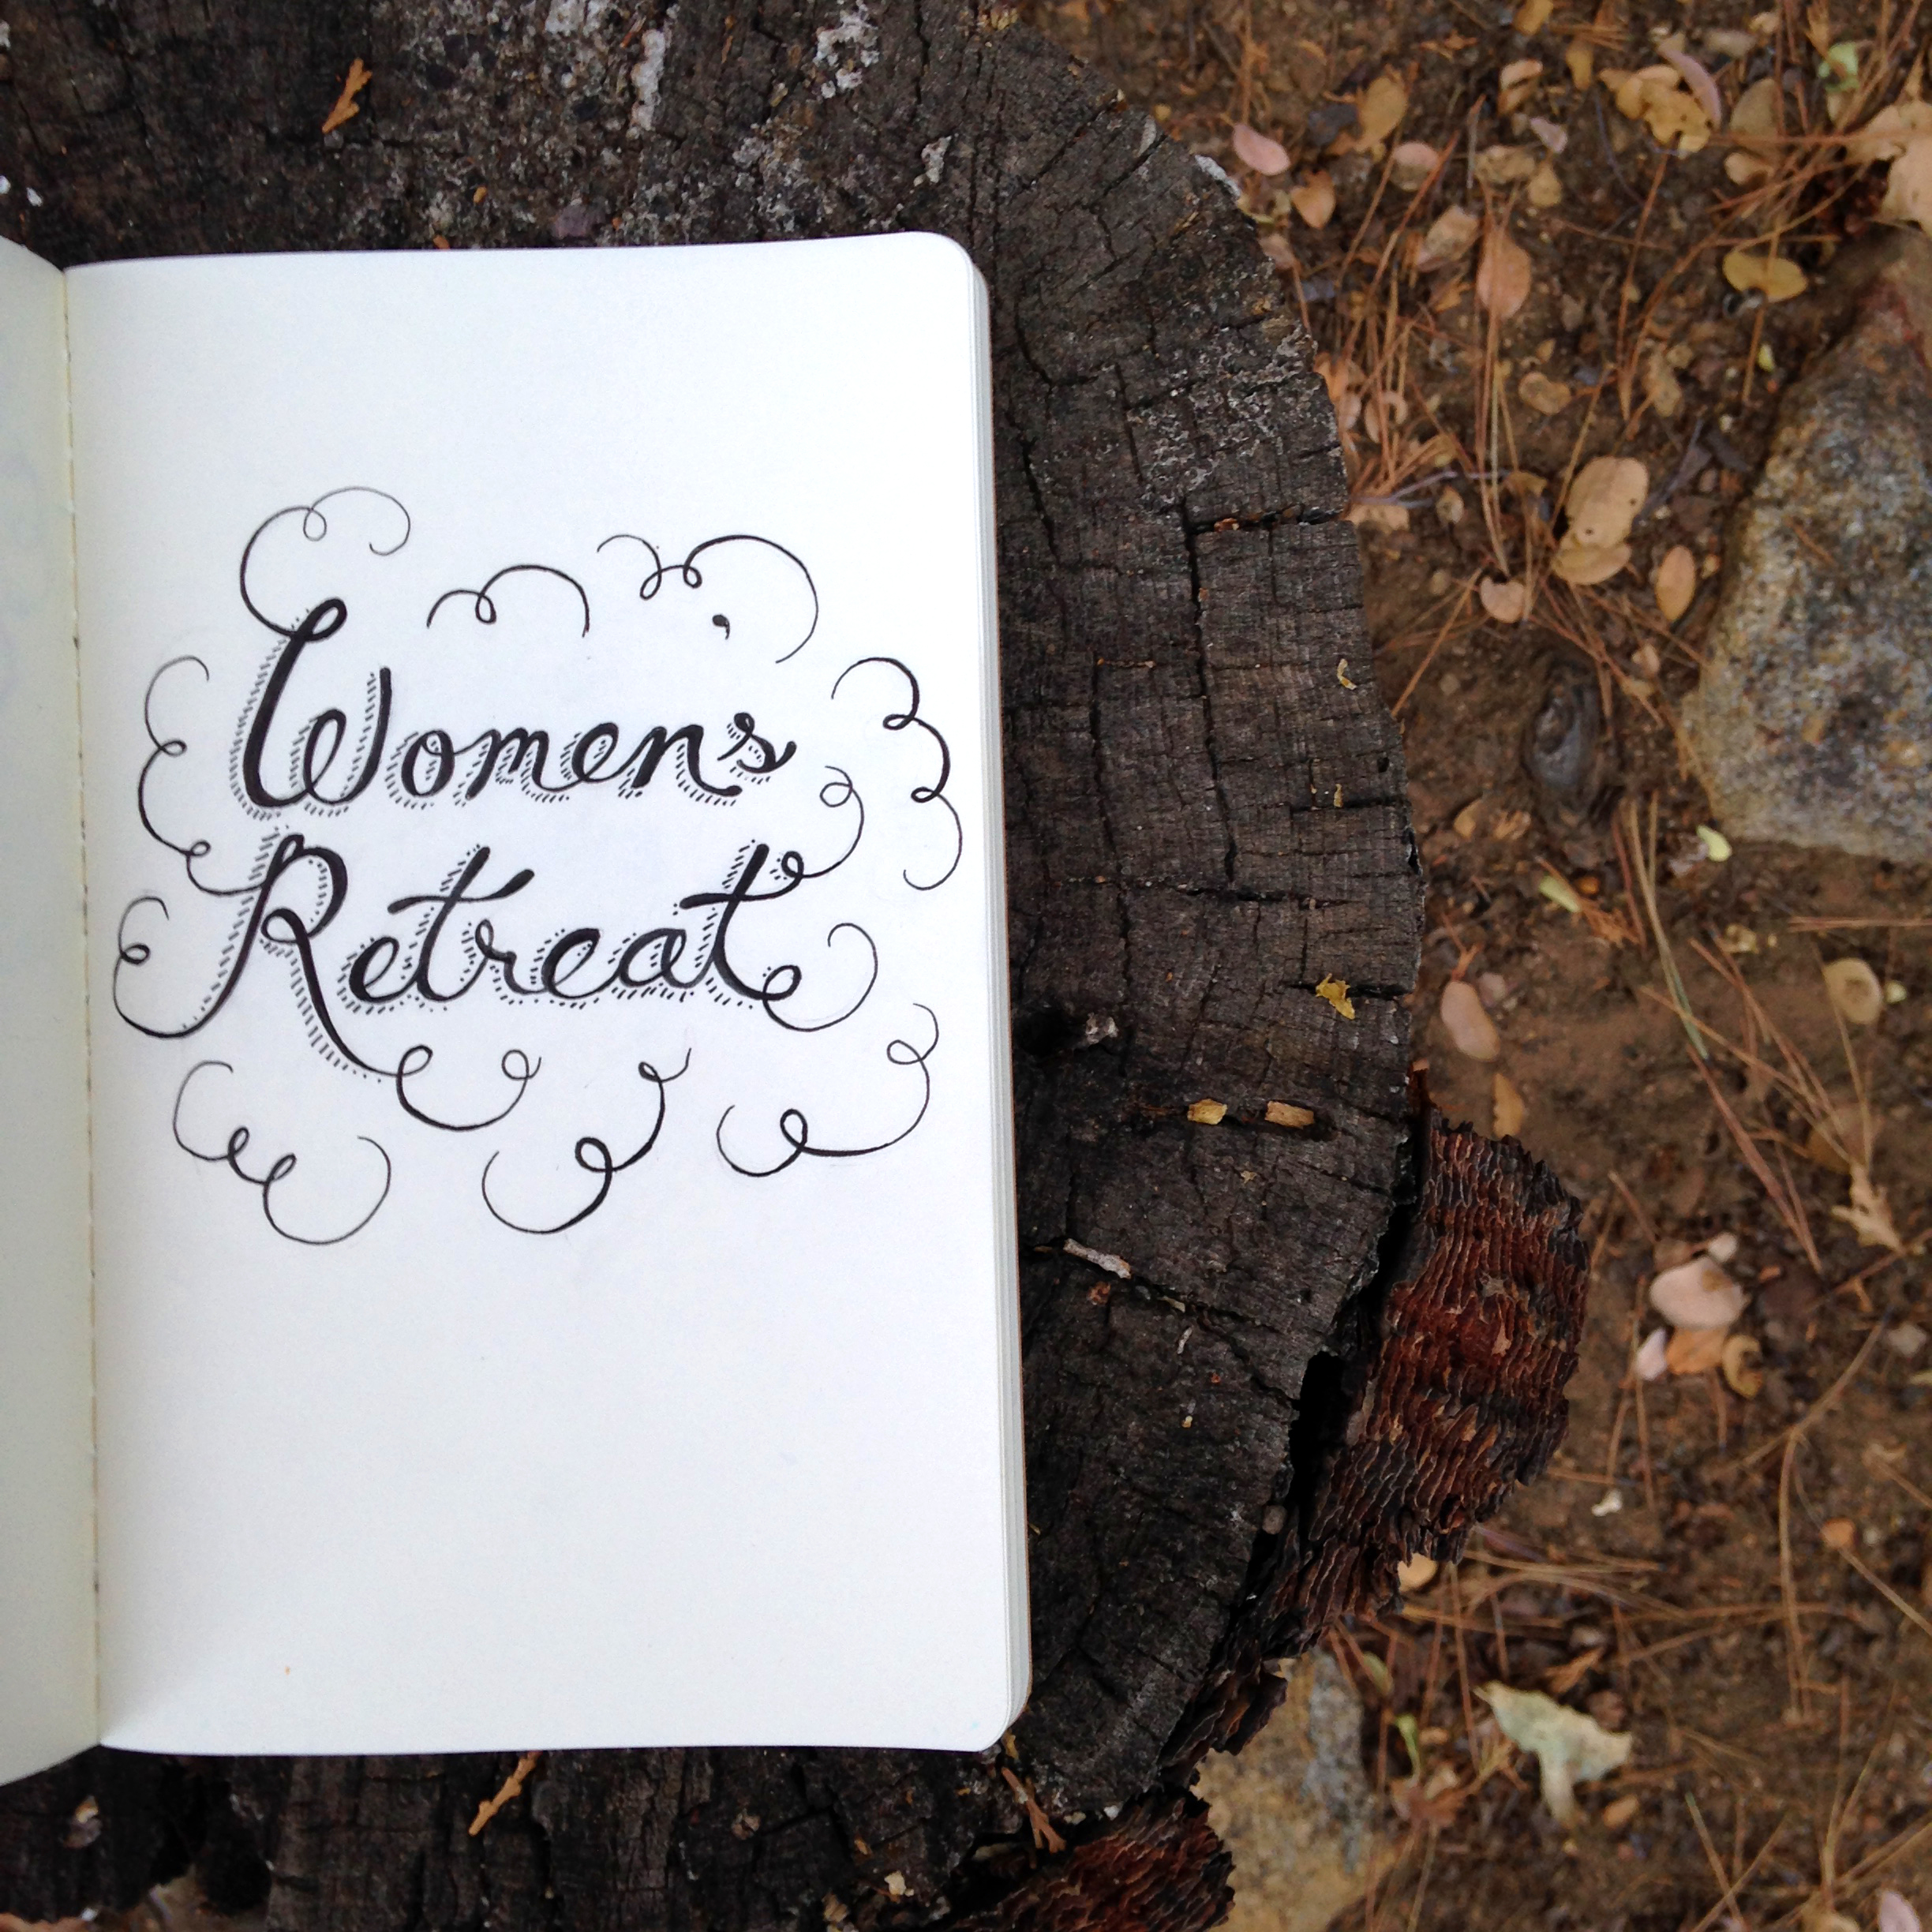 Women's
Retreat